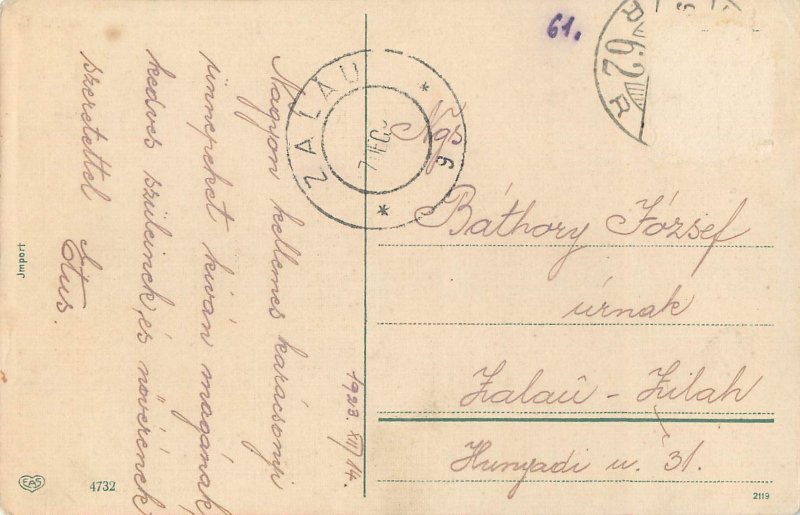 61.
R 62 R
ZALAU
* * 9
Nagyon kellemes karácsonyi
ünnepeket kiván magának,
kedves szüleinek, és nővérének
szeretettel
Etus.
1923. XII/14.
Ngs
Báthory József
úrnak
Zalaŭ - Zilah
Hunyadi u. 31.
Jmport
EAS
4732
2119